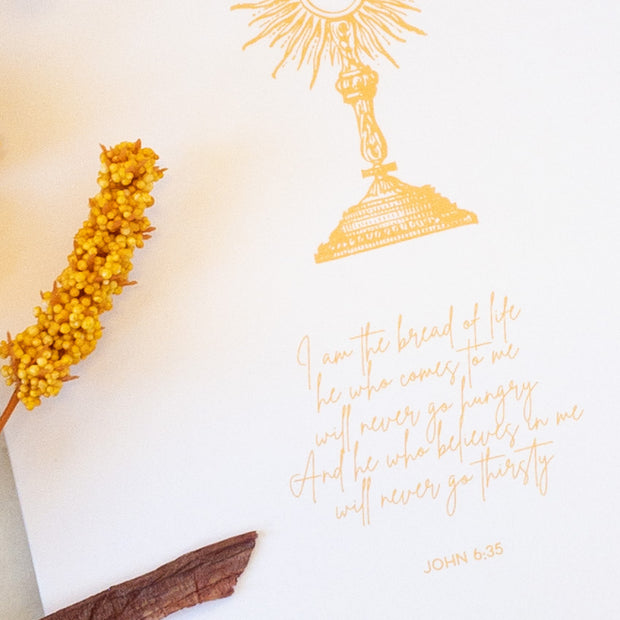 I am the bread of life
he who comes to me
will never go hungry
And he who believes in me
will never go thirsty
JOHN 6:35